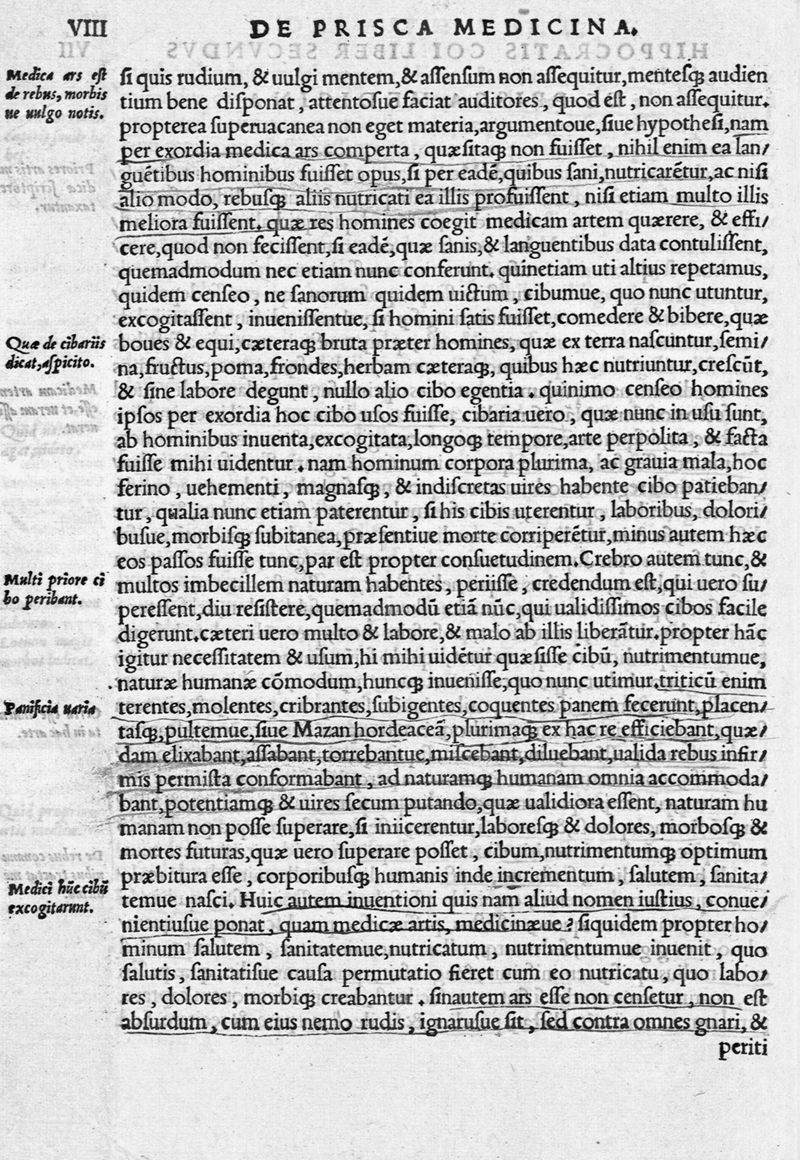 VIII DE PRISCA MEDICINA.
Medica ars est
de rebus, morbis
ue uulgo notis.
si quis rudium, & uulgi mentem, & assensum non assequitur, mentesq; audien
tium bene disponat, attentosue faciat auditores, quod est, non assequitur.
propterea superuacanea non eget materia, argumentoue, siue hypothesi, nam
per exordia medica ars comperta, quæsitaq; non fuisset, nihil enim ea lan/
guētibus hominibus fuisset opus, si per eadē, quibus sani, nutricarētur, ac nisi
alio modo, rebusq; aliis nutricati ea illis profuissent, nisi etiam multo illis
meliora fuissent. quæ res homines coegit medicam artem quærere, & effi/
cere, quod non fecissent, si eadē, quæ sanis, & languentibus data contulissent,
quemadmodum nec etiam nunc conferunt. quinetiam uti altius repetamus,
quidem censeo, ne sanorum quidem uictum, cibumue, quo nunc utuntur,
excogitassent, inuenissentue, si homini satis fuisset, comedere & bibere, quæ
Quæ de cibariis
dicat, aspicito.
boues & equi, cæteraq; bruta præter homines, quæ ex terra nascuntur, semi/
na, fructus, poma, frondes, herbam cæteraq;, quibus hæc nutriuntur, crescūt,
& sine labore degunt, nullo alio cibo egentia. quinimo censeo homines
ipsos per exordia hoc cibo usos fuisse, cibaria uero, quæ nunc in usu sunt,
ab hominibus inuenta, excogitata, longoq; tempore, arte perpolita, & facta
fuisse mihi uidentur. nam hominum corpora plurima, ac grauia mala, hoc
ferino, uehementi, magnasq;, & indiscretas uires habente cibo patieban/
tur, qualia nunc etiam paterentur, si his cibis uterentur, laboribus, dolori/
busue, morbisq; subitanea, præsentiue morte corriperētur, minus autem hæc
eos passos fuisse tunc, par est propter consuetudinem. Crebro autem tunc, &
Multi priore ci
bo peribant.
multos imbecillem naturam habentes, periisse, credendum est, qui uero su/
peressent, diu resistere, quemadmodū etiā nūc, qui ualidissimos cibos facile
digerunt. cæteri uero multo & labore, & malo ab illis liberātur. propter hāc
igitur necessitatem & usum, hi mihi uidētur quæsisse cibū, nutrimentumue,
naturæ humanæ cōmodum, huncq; inuenisse, quo nunc utimur. triticū enim
Panificia uaria
terentes, molentes, cribrantes, subigentes, coquentes panem fecerunt, placen/
tasq;, pultemue, siue Mazan hordeaceā, plurimaq; ex hac re efficiebant, quæ/
dam elixabant, assabant, torrebantue, miscebant, diluebant, ualida rebus infir/
mis permista conformabant, ad naturamq; humanam omnia accommoda/
bant, potentiamq; & uires secum putando, quæ ualidiora essent, naturam hu
manam non posse superare, si iniicerentur, laboresq; & dolores, morbosq; &
mortes futuras, quæ uero superare posset, cibum, nutrimentumq; optimum
præbitura esse, corporibusq; humanis inde incrementum, salutem, sanita/
Medici hūc cibū
excogitarunt.
temue nasci. Huic autem inuentioni quis nam aliud nomen iustius, conue/
nientiusue ponat, quam medicæ artis, medicinæue? siquidem propter ho/
minum salutem, sanitatemue, nutricatum, nutrimentumue inuenit, quo
salutis, sanitatisue causa permutatio fieret cum eo nutricatu, quo labo/
res, dolores, morbiq; creabantur. sinautem ars esse non censetur, non est
absurdum, cum eius nemo rudis, ignarusue sit, sed contra omnes gnari, &
periti